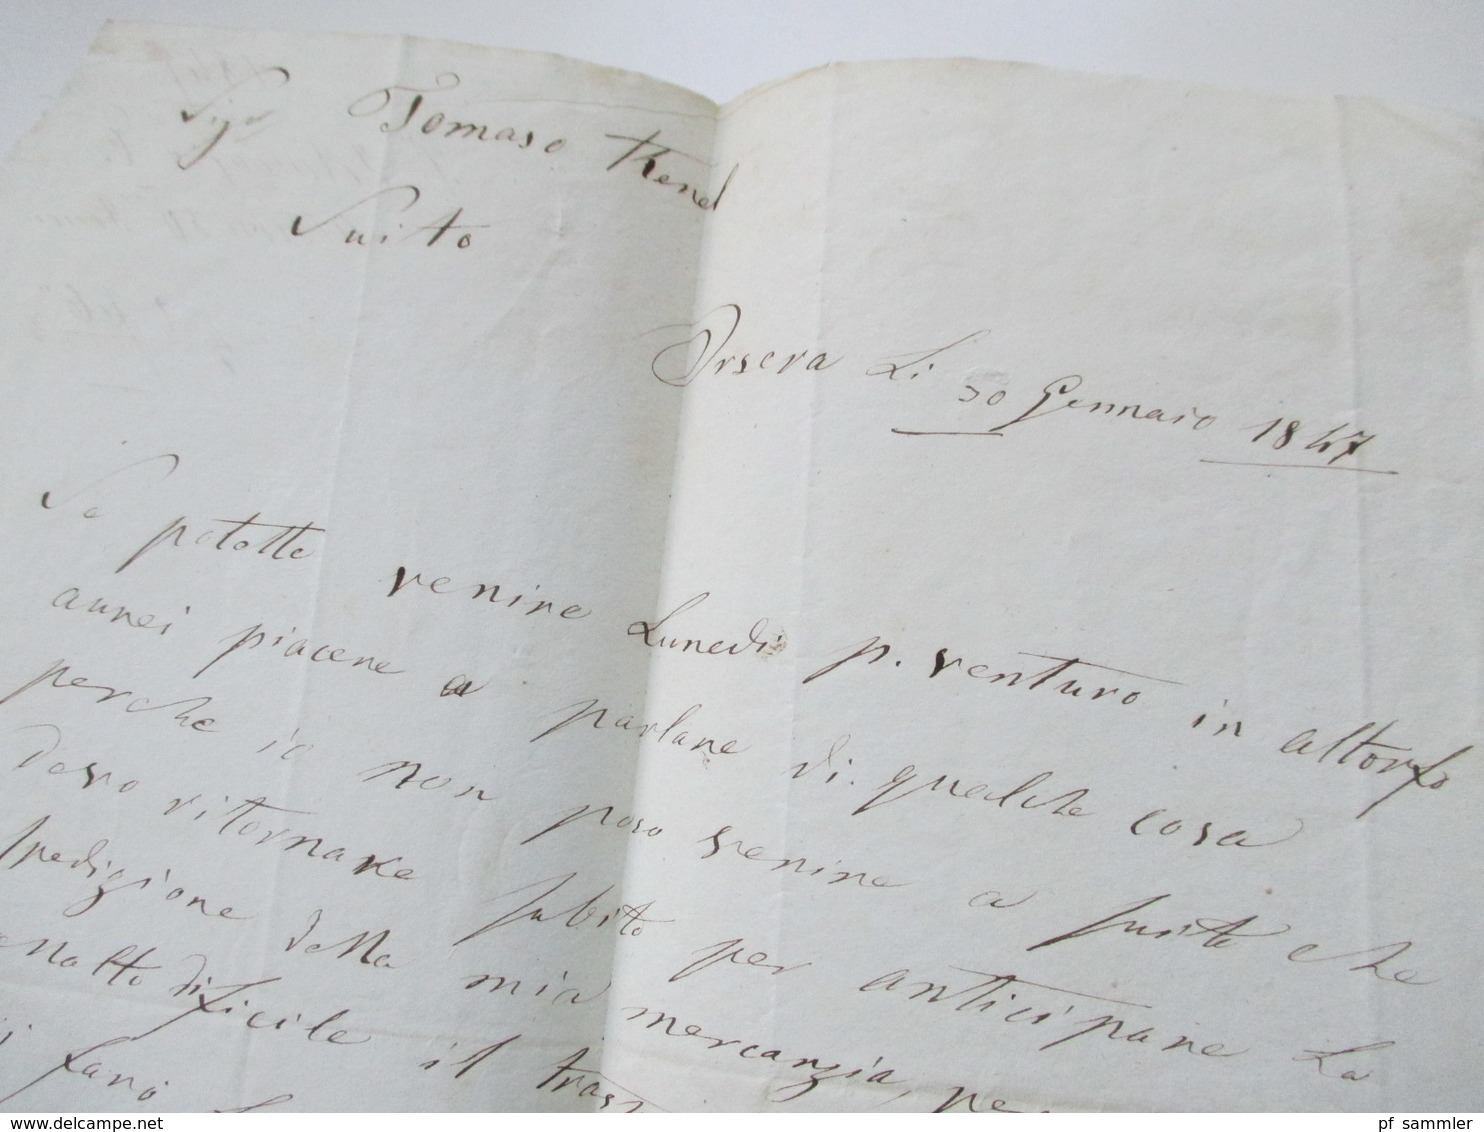 Sigr Tomaso Kenel
Suito
Orsera Li 30 Gennaio 1847
Se potette venire Lunedi p. venturo in altorfo
aurei piacere a parlare di qualche cosa
perche io non poso venire a suito che
devo ritornare subito per anticipare La
spedizione della mia mercanzia, pe
molto dificile il tras
fano
www.delcampe.net
pf_sammler